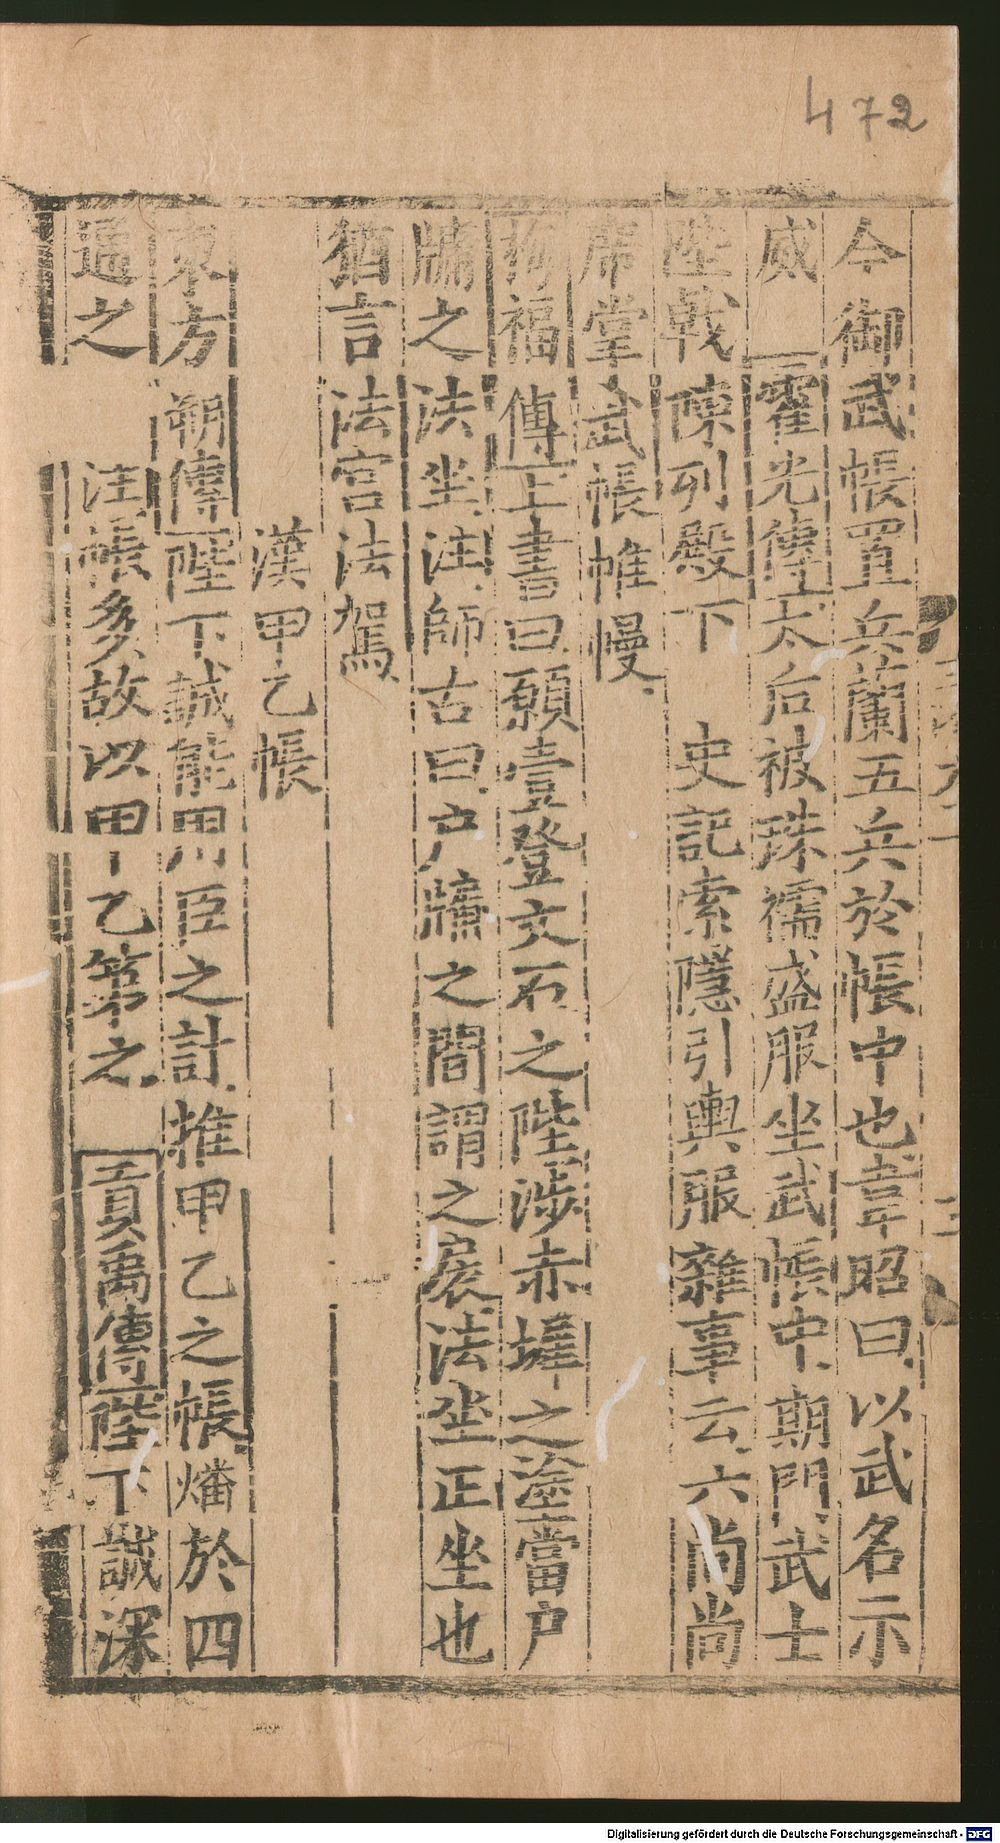 472
今御武帳置兵蘭五兵於帳中也韋昭曰以武名示
威 霍光傳太后被珠襦盛服坐武帳中期門武士
陛戟陳列殿下 史記索隱引輿服雜事云六尚尚
席掌武帳帷幔
梅福傳上書曰願壹登文石之陛涉赤墀之塗當户
牖之法坐注師古曰户牖之間謂之扆法坐正坐也
猶言法宫法駕
漢甲乙帳
東方朔傳陛下誠能用臣之計推甲乙之帳燔於四
通之 注帳多故以甲乙第之 貢禹傳陛下誠深
Digitalisierung gefördert durch die Deutsche Forschungsgemeinschaft - DFG